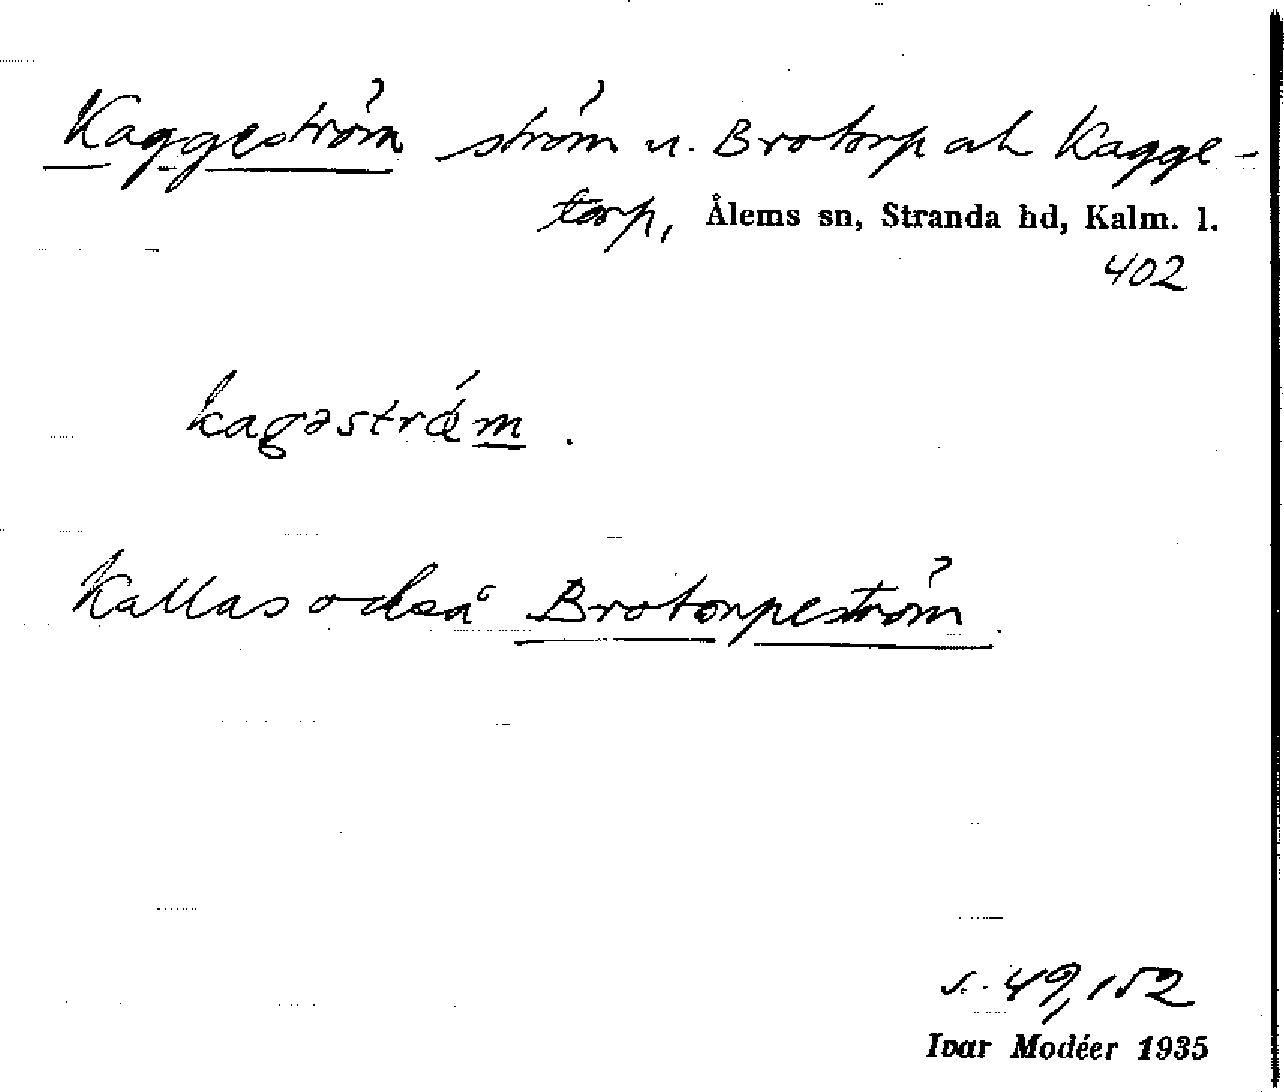 Kaggeström ström u. Brotorp och Kagge-
torp, Ålems sn, Stranda hd, Kalm. l.
402
kagəstrǿm .
Kallas också Brotorpeström.
s. 49, 152
Ivar Modéer 1935